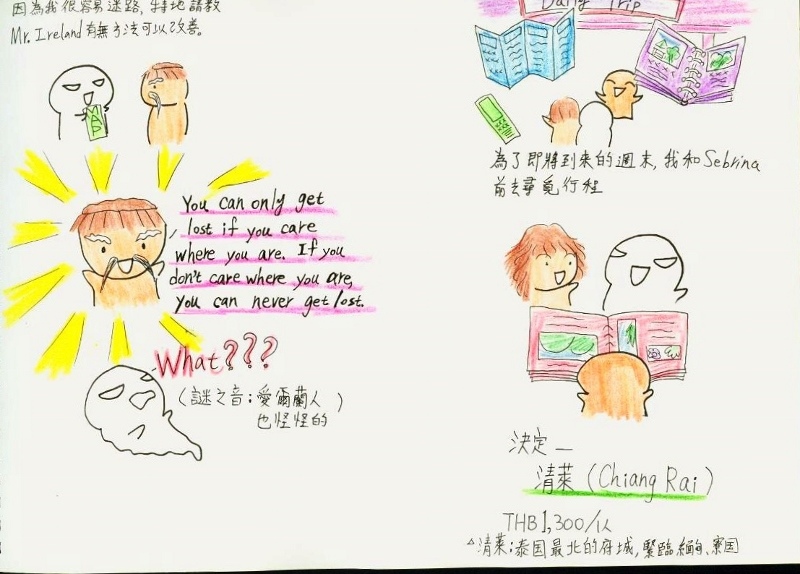 因為我很容易迷路,特地請教
Mr. Ireland有無方法可以改善。
MAP
You can only get
lost if you care
where you are. If you
don't care where you are,
you can never get lost.
What???
(謎之音:愛爾蘭人
也怪怪的)
Daily Trip
為了即將到來的週末,我和Sebrina
前去尋覓行程
決定—
清萊 (Chiang Rai)
THB1,300/人
△清萊:泰国最北的府城,緊臨緬甸、寮国